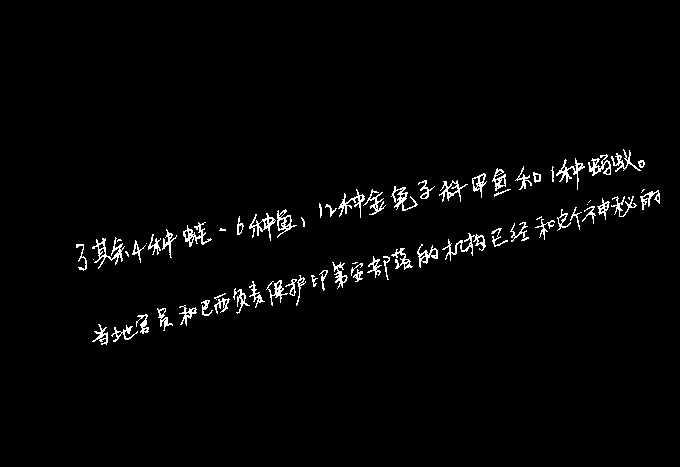 了其余4种蛙、6种鱼，12种金龟子科甲鱼和1种蚂蚁。
当地官员和巴西负责保护印第安部落的机构已经和这个神秘的